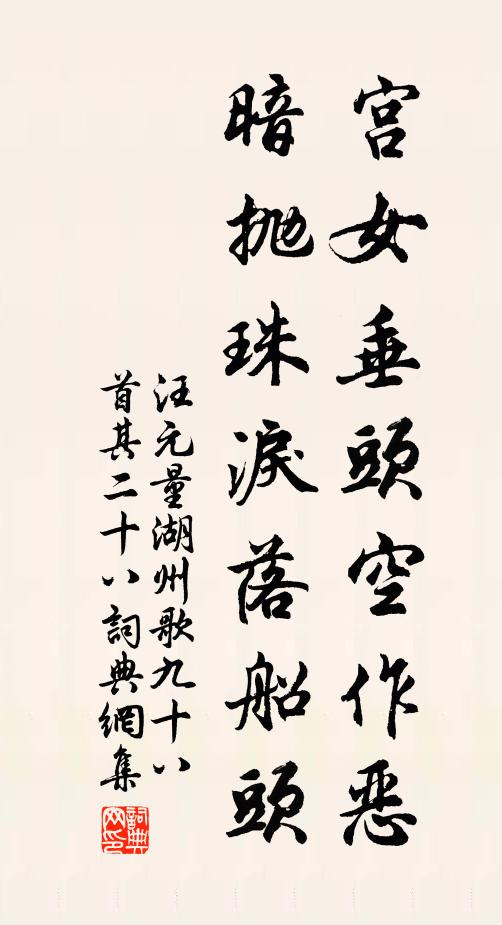 宫女垂頭空作恶
暗抛珠淚落船頭
汪元量湖州歌九十八
首其二十八詞典網集
詞典
网印